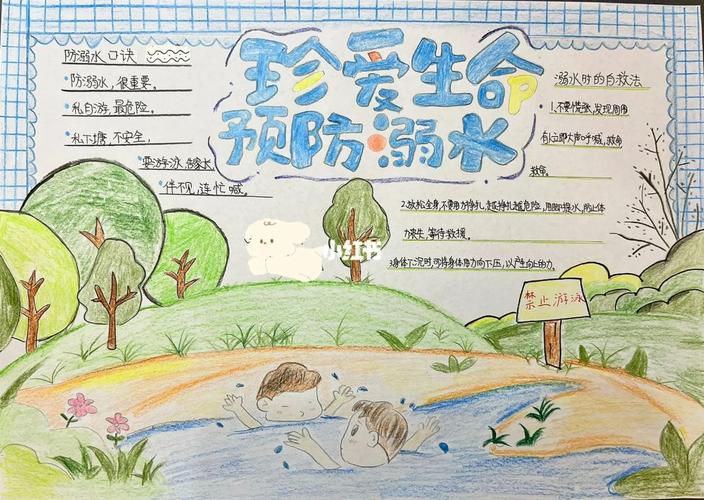 珍爱生命
预防溺水
防溺水口诀
防溺水，很重要。
私自游，最危险。
私下塘，不安全，
要游泳，告家长
伴不见，连忙喊。
溺水时的自救法
1.不要慌张，发现周围
有人立即大声呼喊，救命
救命。
2.放松全身，不要用力挣扎，
等待救援。
身体下沉时，可将身体用力向下压，以产生向上的力。
禁止游泳
小红书